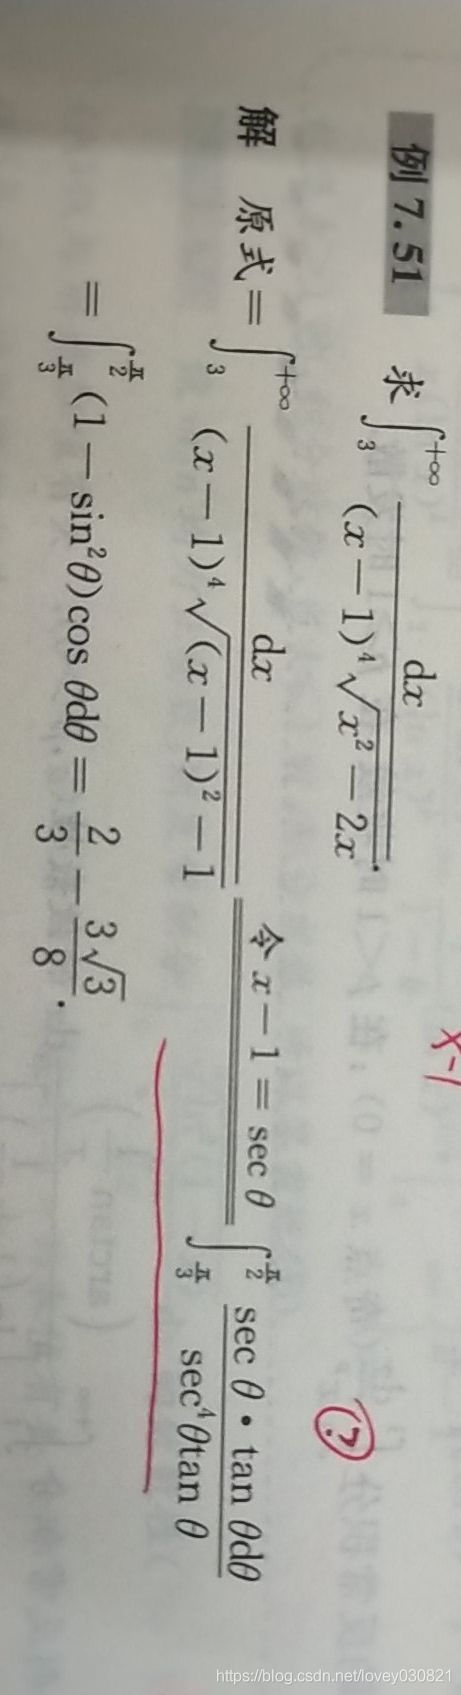 例 7.51 求 ∫₃^{+∞} dx / ((x−1)⁴√(x²−2x)).
解 原式 = ∫₃^{+∞} dx / ((x−1)⁴√((x−1)²−1)) 令 x−1 = sec θ ∫_{π/3}^{π/2} sec θ · tan θdθ / (sec⁴θtan θ)
= ∫_{π/3}^{π/2} (1−sin²θ)cos θdθ = 2/3 − 3√3/8 .
x-1
(?)
https://blog.csdn.net/lovey030821